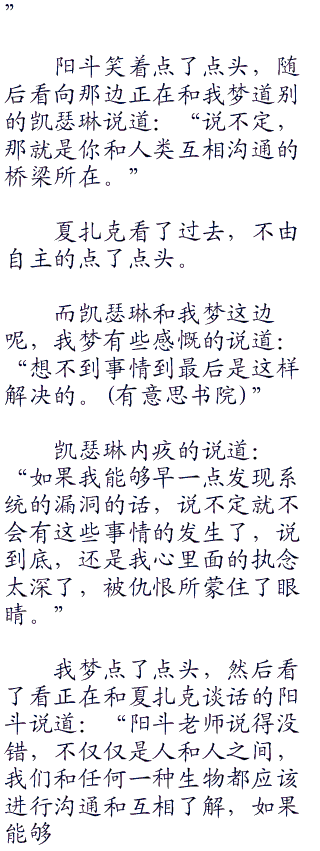 ”
阳斗笑着点了点头，随
后看向那边正在和我梦道别
的凯瑟琳说道：“说不定，
那就是你和人类互相沟通的
桥梁所在。”
夏扎克看了过去，不由
自主的点了点头。
而凯瑟琳和我梦这边
呢，我梦有些感慨的说道：
“想不到事情到最后是这样
解决的。(有意思书院)”
凯瑟琳内疚的说道：
“如果我能够早一点发现系
统的漏洞的话，说不定就不
会有这些事情的发生了，说
到底，还是我心里面的执念
太深了，被仇恨所蒙住了眼
睛。”
我梦点了点头，然后看
了看正在和夏扎克谈话的阳
斗说道：“阳斗老师说得没
错，不仅仅是人和人之间，
我们和任何一种生物都应该
进行沟通和互相了解，如果
能够